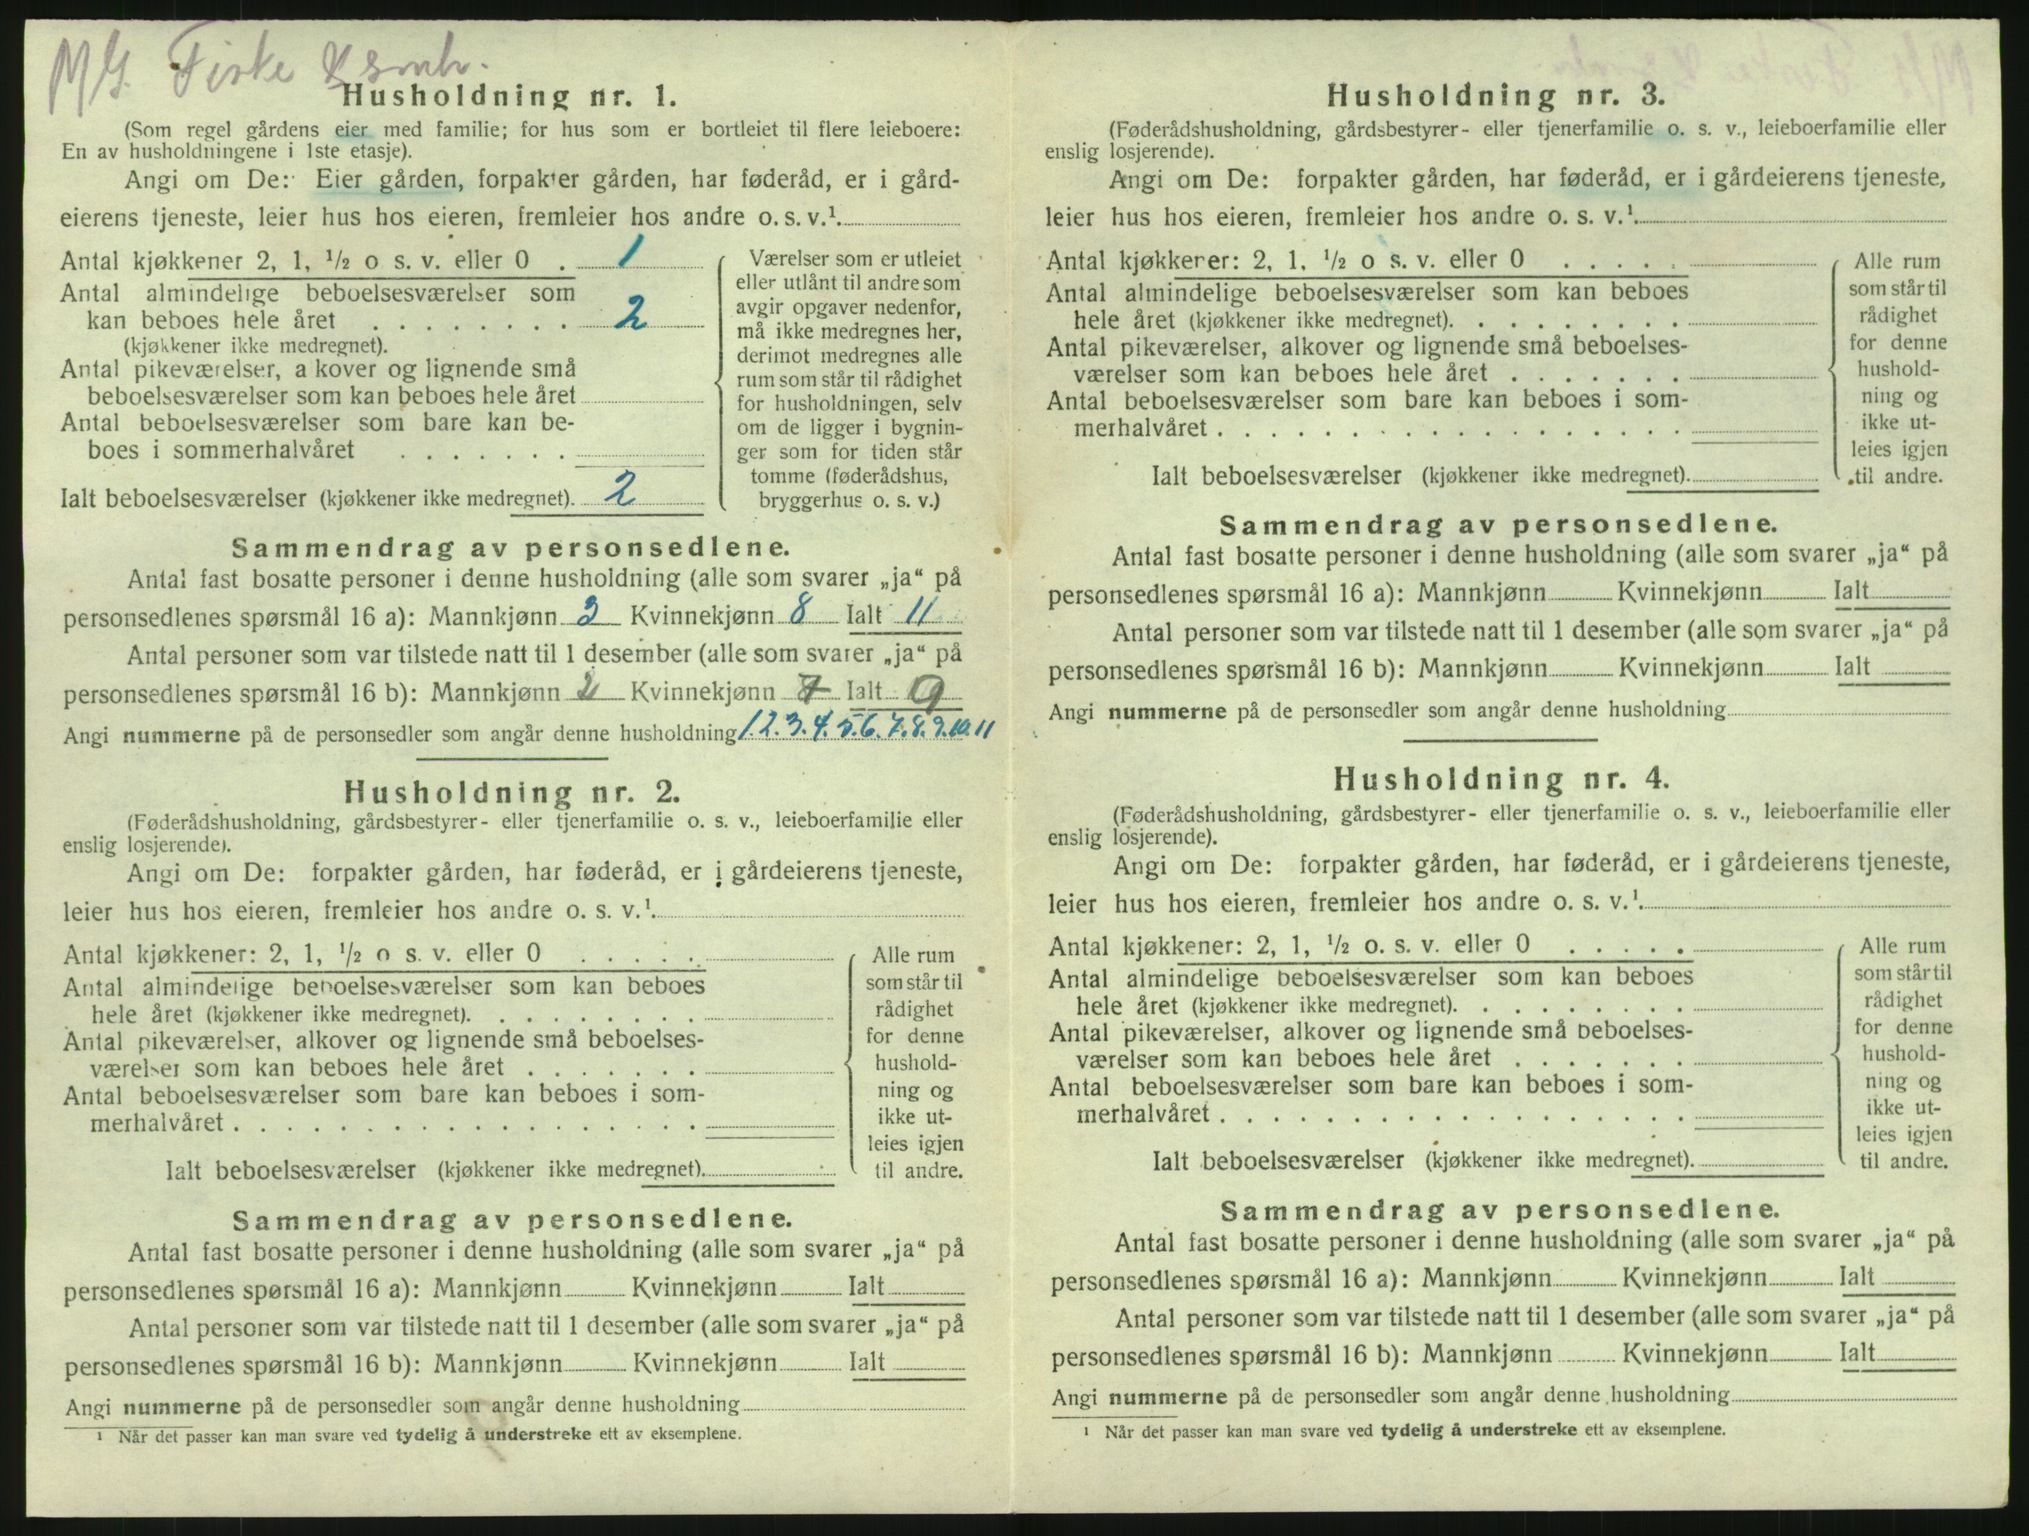 M G. Fiske
Husholdning nr. 1.
(Som regel gårdens eier med familie; for hus som er bortleiet til flere leieboere:
En av husholdningene i 1ste etasje).
Angi om De: Eier gården, forpakter gården, har føderåd, er i gård-
eierens tjeneste, leier hus hos eieren, fremleier hos andre o. s. v.¹
Antal kjøkkener 2, 1, ½ o s. v. eller 0 . 1
Antal almindelige beboelsesværelser som
kan beboes hele året . . . . . . . . 2
(kjøkkener ikke medregnet).
Antal pikeværelser, a kover og lignende små
beboelsesværelser som kan beboes hele året
Antal beboelsesværelser som bare kan be-
boes i sommerhalvåret . . . . . . .
Ialt beboelsesværelser (kjøkkener ikke medregnet). 2
Værelser som er utleiet
eller utlånt til andre som
avgir opgaver nedenfor,
må ikke medregnes her,
derimot medregnes alle
rum som står til rådighet
for husholdningen, selv
om de ligger i bygnin-
ger som for tiden står
tomme (føderådshus,
bryggerhus o. s. v.)
Sammendrag av personsedlene.
Antal fast bosatte personer i denne husholdning (alle som svarer „ja“ på
personsedlenes spørsmål 16 a): Mannkjønn 3 Kvinnekjønn 8 Ialt 11
Antal personer som var tilstede natt til 1 desember (alle som svarer „ja“ på
personsedlenes spørsmål 16 b): Mannkjønn 2 Kvinnekjønn 7 Ialt 9
Angi nummerne på de personsedler som angår denne husholdning 1.2.3.4.5.6.7.8.9.10.11
Husholdning nr. 2.
(Føderådshusholdning, gårdsbestyrer- eller tjenerfamilie o. s. v., leieboerfamilie eller
enslig losjerende).
Angi om De: forpakter gården, har føderåd, er i gårdeierens tjeneste,
leier hus hos eieren, fremleier hos andre o. s. v.¹
Antal kjøkkener: 2, 1, ½ o s. v. eller 0 . . . . .
Antal almindelige beboelsesværelser som kan beboes
hele året (kjøkkener ikke medregnet). . . . . . . . .
Antal pikeværelser, alkover og lignende små beboelses-
værelser som kan beboes hele året . . . . . . .
Antal beboelsesværelser som bare kan beboes i som-
merhalvåret . . . . . . . . . . . . . . . . . .
Ialt beboelsesværelser (kjøkkener ikke medregnet).
Alle rum
som står til
rådighet
for denne
hushold-
ning og
ikke ut-
leies igjen
til andre.
Sammendrag av personsedlene.
Antal fast bosatte personer i denne husholdning (alle som svarer „ja“ på
personsedlenes spørsmål 16 a): Mannkjønn Kvinnekjønn Ialt
Antal personer som var tilstede natt til 1 desember (alle som svarer „ja“ på
personsedlenes spørsmål 16 b): Mannkjønn Kvinnekjønn Ialt
Angi nummerne på de personsedler som angår denne husholdning
¹ Når det passer kan man svare ved tydelig å understreke ett av eksemplene.
Husholdning nr. 3.
(Føderådshusholdning, gårdsbestyrer- eller tjenerfamilie o. s. v., leieboerfamilie eller
enslig losjerende).
Angi om De: forpakter gården, har føderåd, er i gårdeierens tjeneste,
leier hus hos eieren, fremleier hos andre o. s. v.¹
Antal kjøkkener: 2, 1, ½ o s. v. eller 0 . . . . .
Antal almindelige beboelsesværelser som kan beboes
hele året (kjøkkener ikke medregnet). . . . . . . . .
Antal pikeværelser, alkover og lignende små beboelses-
værelser som kan beboes hele året . . . . . . .
Antal beboelsesværelser som bare kan beboes i som-
merhalvåret . . . . . . . . . . . . . . . . . .
Ialt beboelsesværelser (kjøkkener ikke medregnet).
Alle rum
som står til
rådighet
for denne
hushold-
ning og
ikke ut-
leies igjen
til andre.
Sammendrag av personsedlene.
Antal fast bosatte personer i denne husholdning (alle som svarer „ja“ på
personsedlenes spørsmål 16 a): Mannkjønn Kvinnekjønn Ialt
Antal personer som var tilstede natt til 1 desember (alle som svarer „ja“ på
personsedlenes spørsmål 16 b): Mannkjønn Kvinnekjønn Ialt
Angi nummerne på de personsedler som angår denne husholdning
Husholdning nr. 4.
(Føderådshusholdning, gårdsbestyrer- eller tjenerfamilie o. s. v., leieboerfamilie eller
enslig losjerende).
Angi om De: forpakter gården, har føderåd, er i gårdeierens tjeneste,
leier hus hos eieren, fremleier hos andre o. s. v.¹
Antal kjøkkener: 2, 1, ½ o. s. v. eller 0 . . . . .
Antal almindelige beboelsesværelser som kan beboes
hele året (kjøkkener ikke medregnet). . . . . . . . .
Antal pikeværelser, alkover og lignende små beboelses-
værelser som kan beboes hele året . . . . . . .
Antal beboelsesværelser som bare kan beboes i som-
merhalvåret . . . . . . . . . . . . . . . . . .
Ialt beboelsesværelser (kjøkkener ikke medregnet).
Alle rum
som står til
rådighet
for denne
hushold-
ning og
ikke ut-
leies igjen
til andre.
Sammendrag av personsedlene.
Antal fast bosatte personer i denne husholdning (alle som svarer „ja“ på
personsedlenes spørsmål 16 a): Mannkjønn Kvinnekjønn Ialt
Antal personer som var tilstede natt til 1 desember (alle som svarer „ja“ på
personsedlenes spørsmål 16 b): Mannkjønn Kvinnekjønn Ialt
Angi nummerne på de personsedler som angår denne husholdning
¹ Når det passer kan man svare ved tydelig å understreke ett av eksemplene.